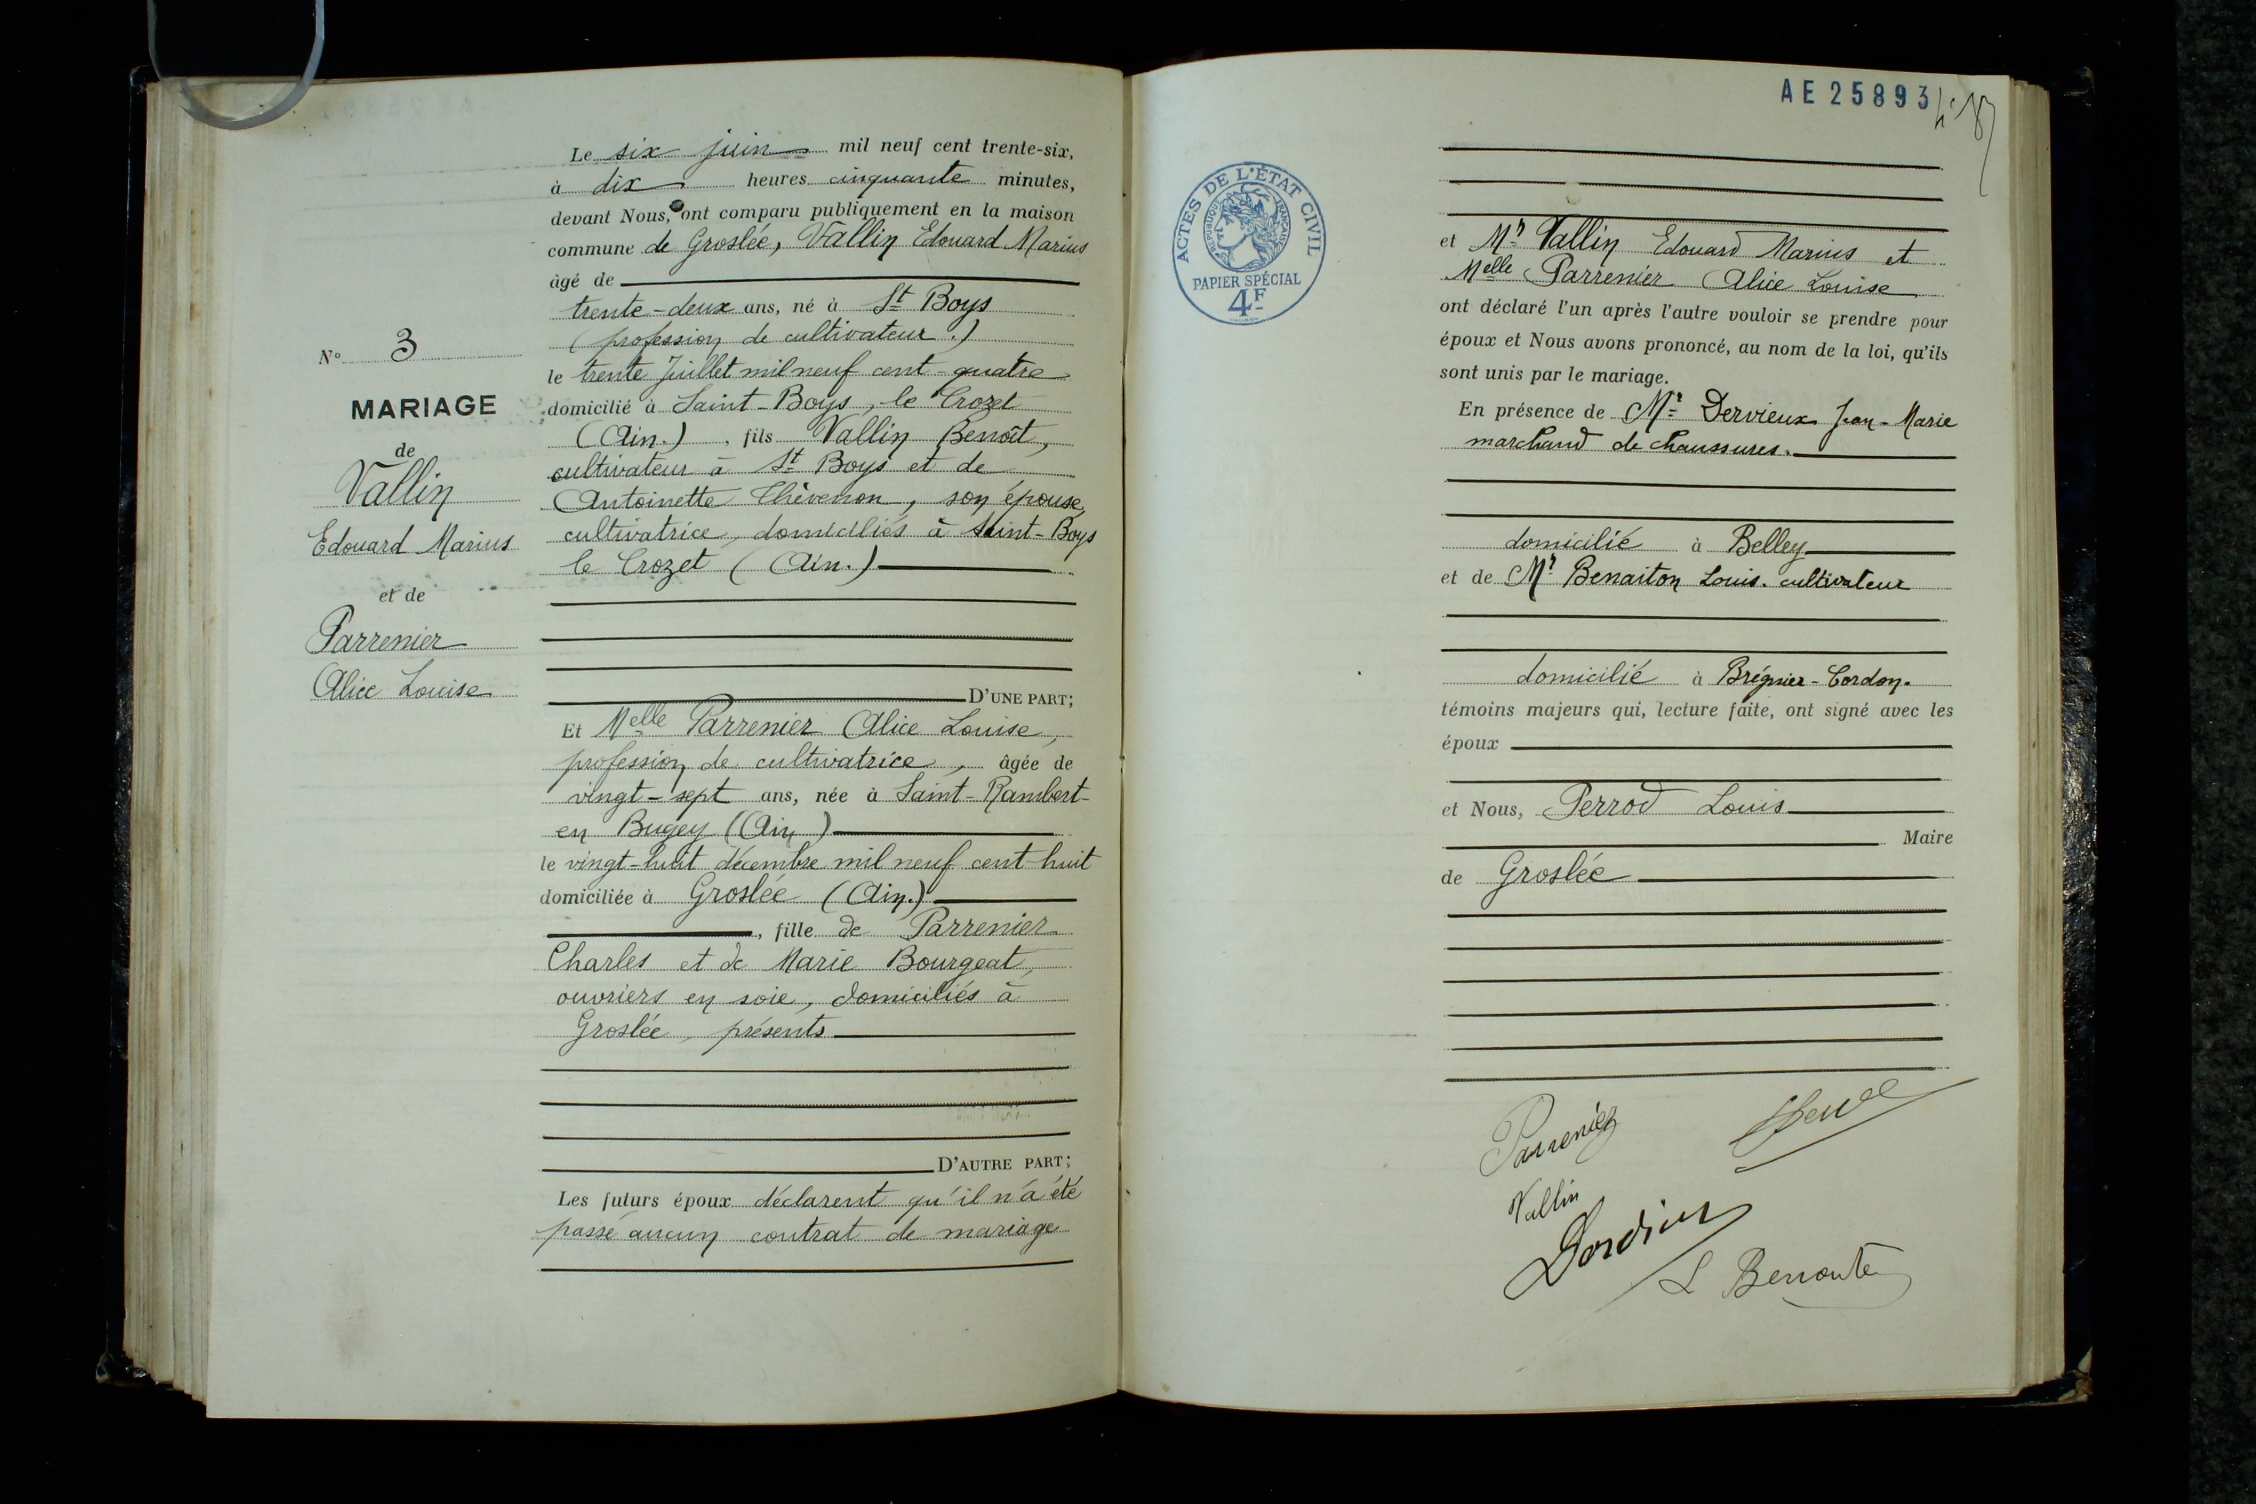 N° 3
MARIAGE
de
Vallin
Edouard Marius
et de
Parrenier
Alice Louise
Le six juin mil neuf cent trente-six,
à dix heures cinquante minutes,
devant Nous, ont comparu publiquement en la maison
commune de Groslée, Vallin Edouard Marius
âgé de
trente-deux ans, né à St Boys
(profession de cultivateur.)
le trente Juillet mil neuf cent-quatre
domicilié à Saint-Boys, le Crozet
(Ain.), fils Vallin Benoît,
cultivateur à St Boys et de
Antoinette Thèvenon, son épouse,
cultivatrice, domiciliés à Saint-Boys
le Crozet (Ain.)
D'UNE PART;
Et Melle Parrenier Alice Louise,
profession de cultivatrice, âgée de
vingt-sept ans, née à Saint-Rambert-
en Bugey (Ain)
le vingt-huit décembre mil neuf cent-huit
domiciliée à Groslée (Ain.)
, fille de Parrenier
Charles et de Marie Bourgeat,
ouvriers en soie, domiciliés à
Groslée, présents
D'AUTRE PART;
Les futurs époux déclarent qu'il n'a été
passé aucun contrat de mariage
AE 25893
ACTES DE L'ÉTAT CIVIL
RÉPUBLIQUE FRANÇAISE
PAPIER SPÉCIAL
4F
et Mr Vallin Edouard Marius et
Melle Parrenier Alice Louise
ont déclaré l'un après l'autre vouloir se prendre pour
époux et Nous avons prononcé, au nom de la loi, qu'ils
sont unis par le mariage.
En présence de Mr Dervieux Jean-Marie
marchand de chaussures.
domicilié à Belley
et de Mr Benaiton Louis. cultivateur
domicilié à Brégnier-Cordon.
témoins majeurs qui, lecture faite, ont signé avec les
époux
et Nous, Perrod Louis
Maire
de Groslée
Parrenier
Vallin